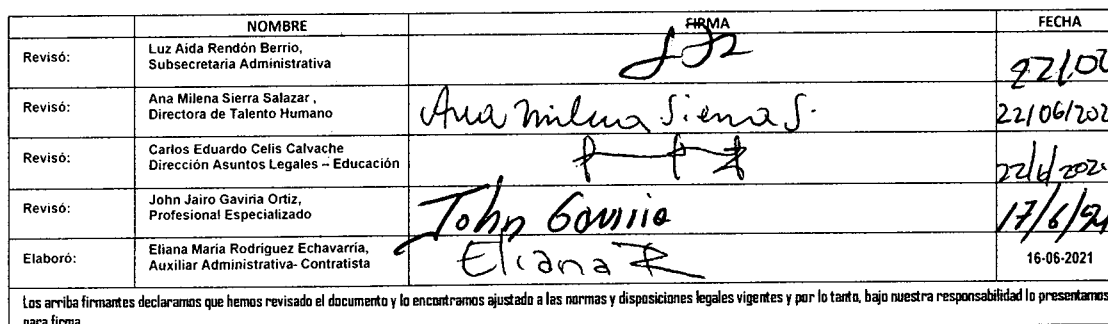 NOMBRE FIRMA FECHA
Revisó: Luz Aida Rendón Berrio,
Subsecretaria Administrativa
22/0
Revisó: Ana Milena Sierra Salazar ,
Directora de Talento Humano
Ana Milena Sierra S. 22/06/202
Revisó: Carlos Eduardo Celis Calvache
Dirección Asuntos Legales – Educación
22/6/202
Revisó: John Jairo Gaviria Ortiz,
Profesional Especializado
John Gaviria 17/6/
Elaboró: Eliana María Rodríguez Echavarría,
Auxiliar Administrativa- Contratista
Eliana R 16-06-2021
Los arriba firmantes declaramos que hemos revisado el documento y lo encontramos ajustado a las normas y disposiciones legales vigentes y por lo tanto, bajo nuestra responsabilidad lo presentamos
para firma